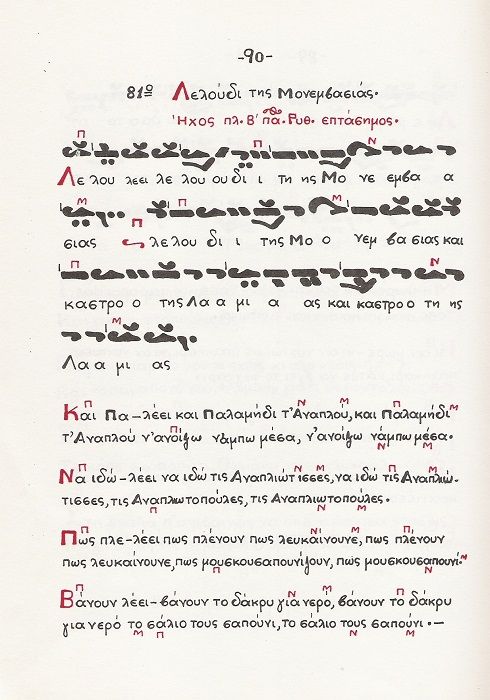 -90-
81ο Λελούδι της Μονεμβασιάς.
Ήχος πλ. Β΄ Πα. Ρυθ. επτάσημος.
Π Π Μ Ν
Λε λου λεει λε λου ου δι ι τη ης Μο νε εμβα α
Μ Π Π Μ
σιας λε λου δι ι της Μο ο νεμ βα σιας και
Π Ν
καστρο ο της Λα α μι α ας και καστρο ο τη ης
Μ
Λα α μι ας
Π Ν Μ Π Μ
Και Πα-λέει και Παλαμήδι τ'Αναπλού, και Παλαμήδι
τ'Αναπλού ν'ανοίψω νάμπω μέσα, ν'ανοίψω νάμπω μέσα.
Π Ν Μ
Π Ν Μ Π Μ
Να ιδώ-λέει να ιδώ τις Αναπλιώτισσες, να ιδώ τις Αναπλιώ-
τισσες, τις Αναπλιωτοπούλες, τις Αναπλιωτοπούλες.
Π Ν Μ
Π Ν Μ Π
Πώς πλε-λέει πως πλένουν πως λευκαίνουνε, πως πλένουν
πως λευκαίνουνε, πως μουσκουσαπουνίζουν, πώς μουσκουσαπουνί.
Μ Π Ν Ν
Π Ν Μ Π
Βάνουν λέει-βάνουν το δάκρυ για νερό, βάνουν το δάκρυ
για νερό το σάλιο τους σαπούνι, το σάλιο τους σαπούνι.-
Μ Π Ν Μ